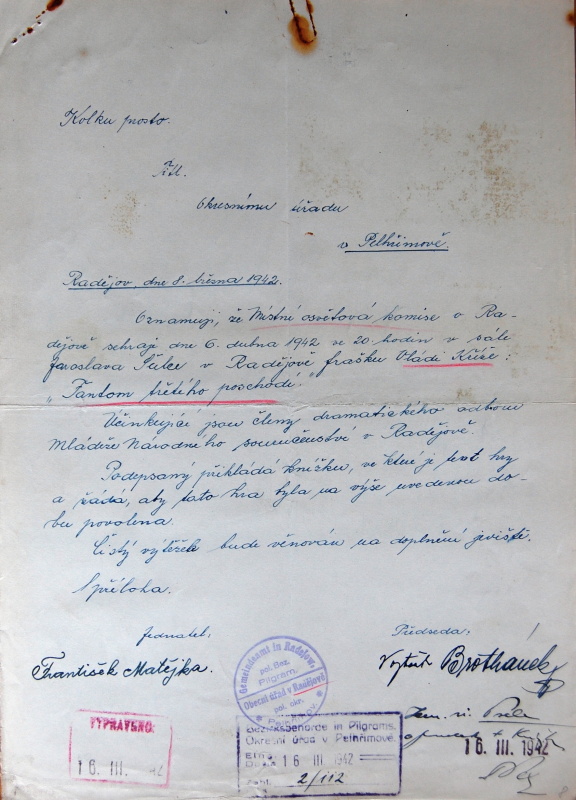 Kolku prosto.
Okresnímu úřadu
v Pelhřimově.
Radějov, dne 8. března 1942.
Oznamuji, že Místní osvětová komise v Ra-
dějově sehraje dne 6. dubna 1942 ve 20. hodin v sále
Jaroslava v Radějově frašku Vládi Kříže:
"Fantom třetího poschodí."
Účinkující jsou členy dramatického odboru
Mládeže Národného souručenství v Radějově.
Podepsaný přikládá knížku, ve které je text hry
a žádá, aby tato hra byla na výše uvedenou do-
bu povolena.
Čistý výtěžek bude věnován na doplnění jeviště.
1 příloha.
Jednatel: Předseda:
František Matějka. Vojtěch Brothánek
Gemeindeamt in Radejow,
pol. Bez.
Pilgram.
Obecní úřad v Radějově
pol. okr.
Pelhřimov.
VYPRAVENO:
16. III. 42
Bezirksbehörde in Pilgrams.
Okresní úřad v Pelhřimově.
16 III 1942
2/112
16. III. 1942